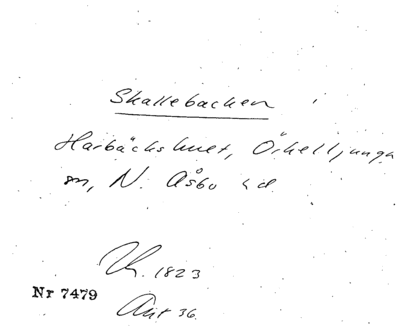 Skallebacken
Harbäckshult, Örkelljunga
sn, N. Åsbo hd.
1823
Nr 7479
Akt 36.